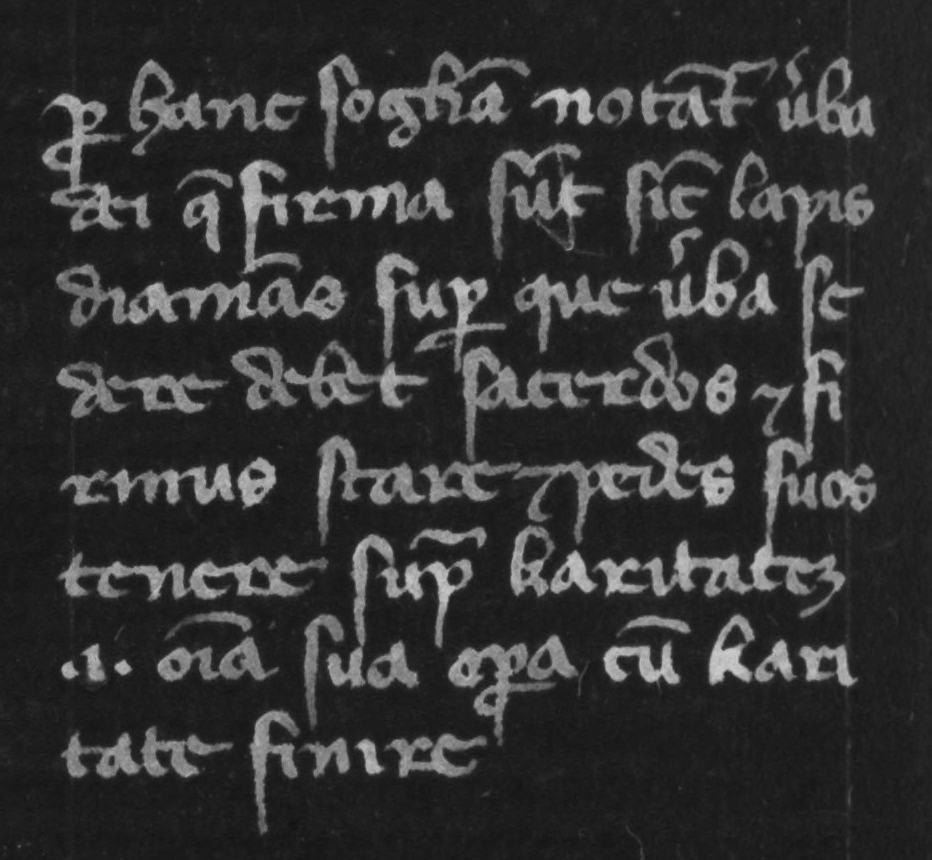 ꝑ hanc soglīā notāt᷑ u͛ba
dei q̄ firma sūt sic̄ lapis
diamās suꝑ que u͛ba se
dere debet sacerdos ⁊ fi
rmus stare ⁊ pedes suos
tenere sup̄ karitateꝫ
.i. oīa sua oꝑa cū kari
tate finire